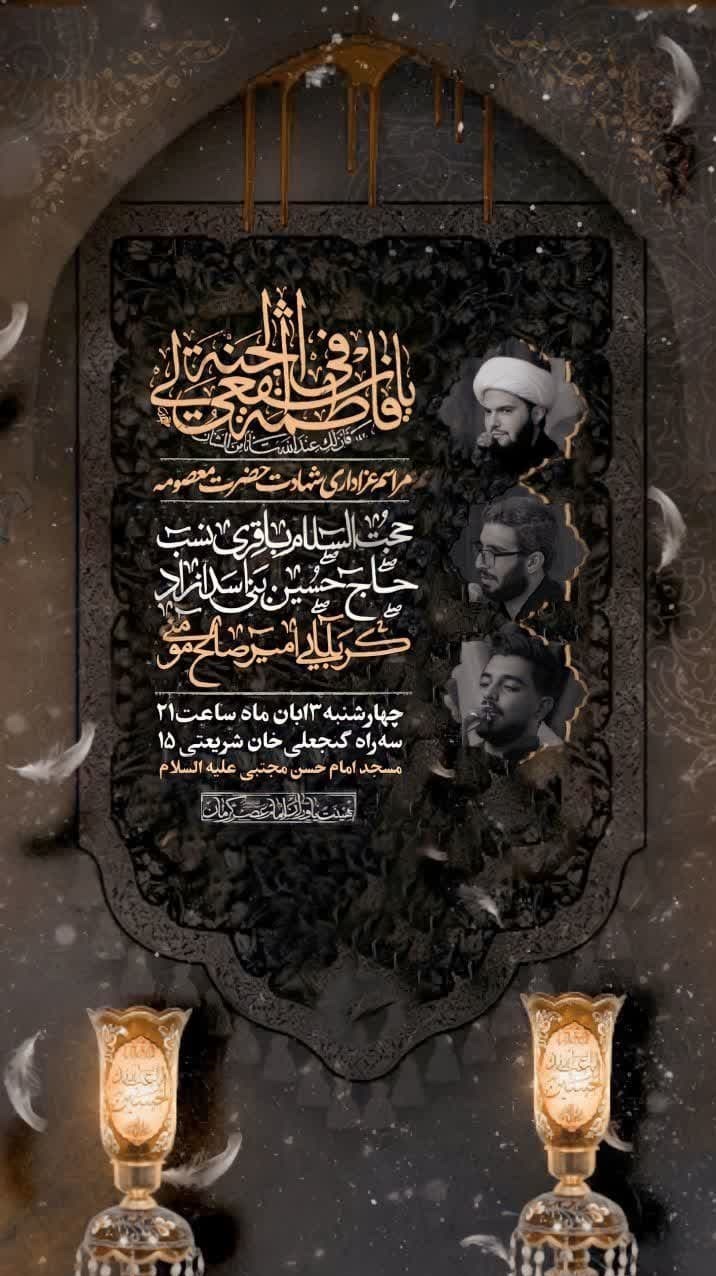 یا فاطمة اشفعی لی فی الجنة
فان لک عندالله شانا من الشان
مراسم عزاداری شهادت حضرت معصومه
حجت السلام باقری نسب
حاج حسین بنی اسد آزاد
کربلایی امیر صالح مومنی
چهارشنبه ۱۳ابان ماه ساعت ۲۱
سه راه گنجعلی خان شریعتی ۱۵
مسجد امام حسن مجتبی علیه السلام
هیئت یاوران امام عصر کرمان